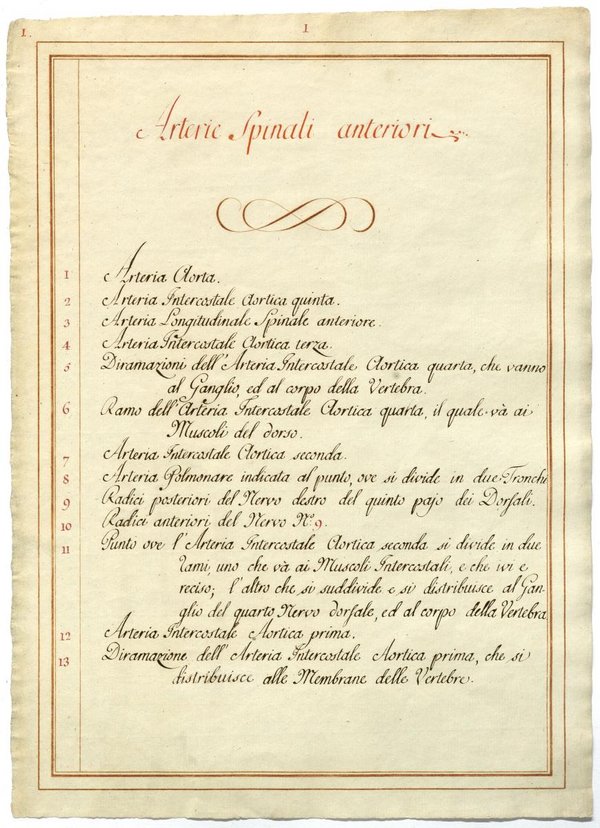 1.
I
Arterie Spinali anteriori
1 Arteria Aorta.
2 Arteria Intercostale Aortica quinta.
3 Arteria Longitudinale Spinale anteriore.
4 Arteria Intercostale Aortica terza.
5 Diramazioni dell'Arteria Intercostale Aortica quarta, che vanno
al Ganglio, ed al corpo della Vertebra.
6 Ramo dell'Arteria Intercostale Aortica quarta, il quale và ai
Muscoli del dorso.
7 Arteria Intercostale Aortica seconda.
8 Arteria Polmonare indicata al punto, ove si divide in due Tronchi
9 Radici posteriori del Nervo destro del quinto pajo dei Dorsali.
10 Radici anteriori del Nervo N.º 9.
11 Punto ove l'Arteria Intercostale Aortica seconda si divide in due
rami, uno che và ai Muscoli Intercostali, e che ivi e
reciso; l'altro che si suddivide e si distribuisce al Gan-
glio del quarto Nervo dorsale, ed al corpo della Vertebra
12 Arteria Intercostale Aortica prima.
13 Diramazione dell'Arteria Intercostale Aortica prima, che si
distribuisce alle Membrane delle Vertebre.